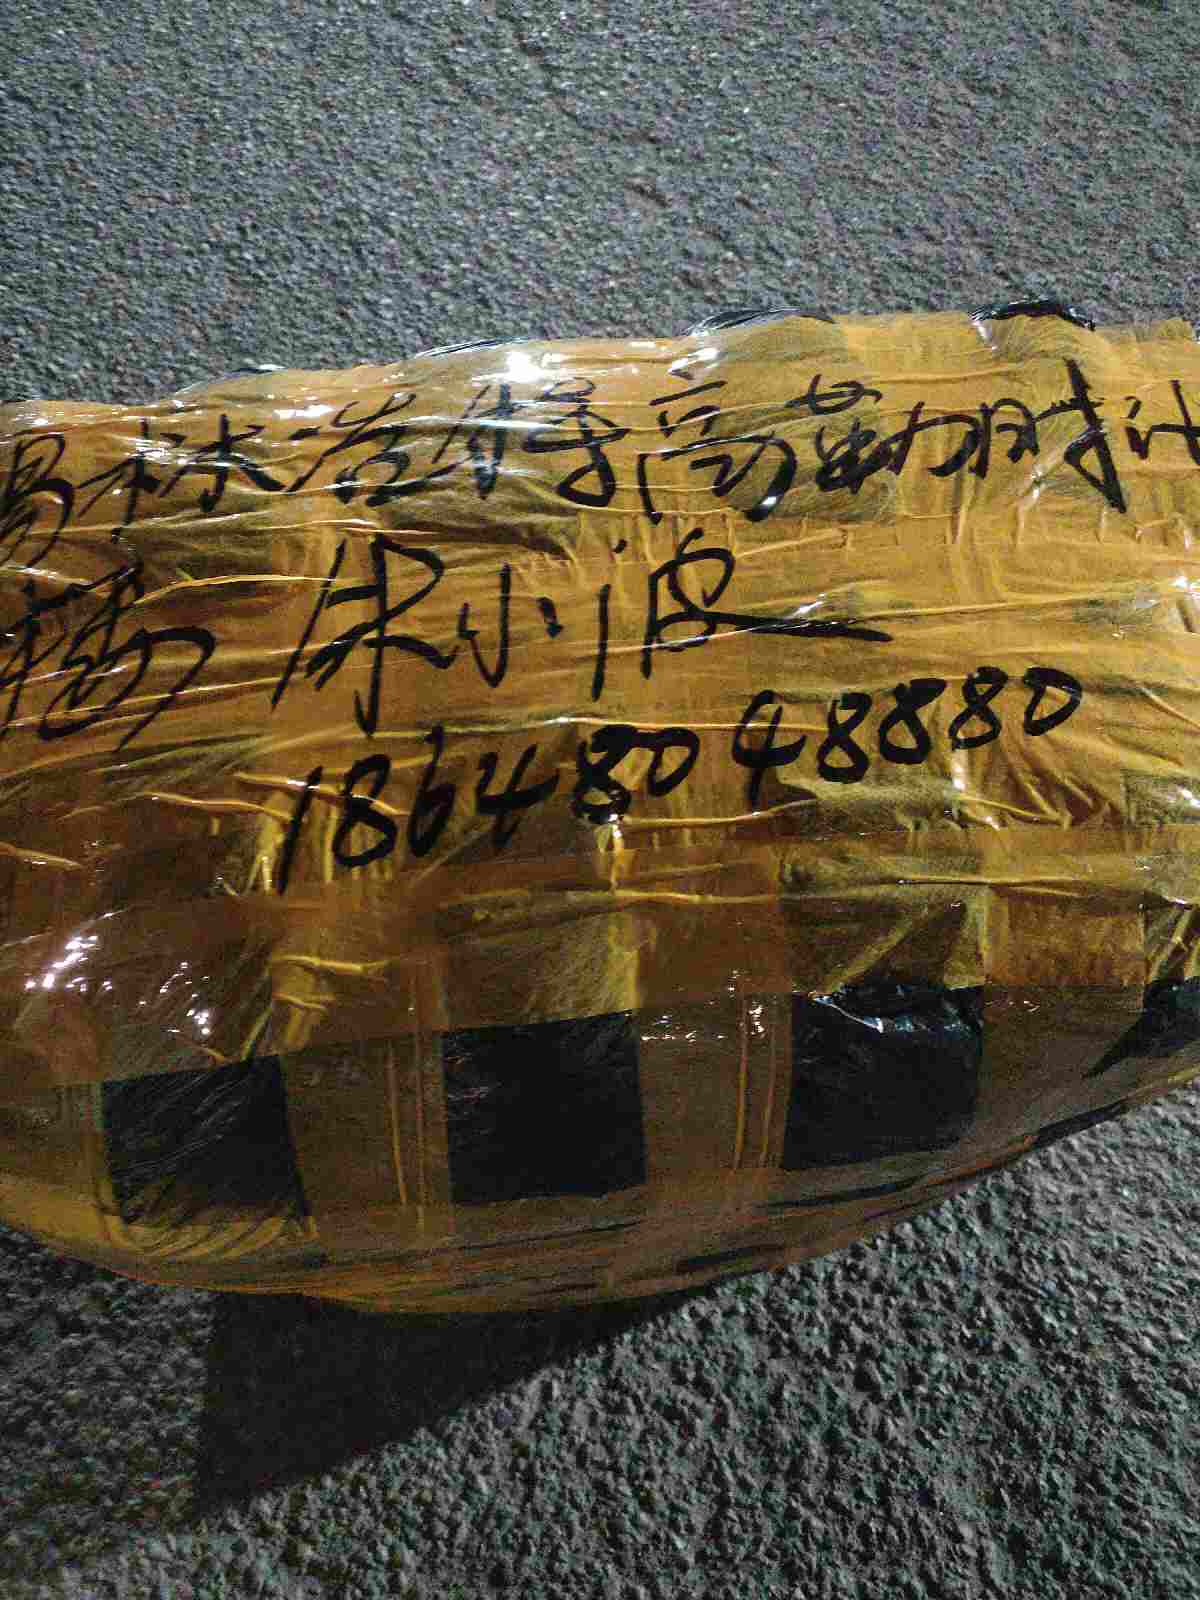 锡林浩特高勒时代
杨 宋小波
18648048880